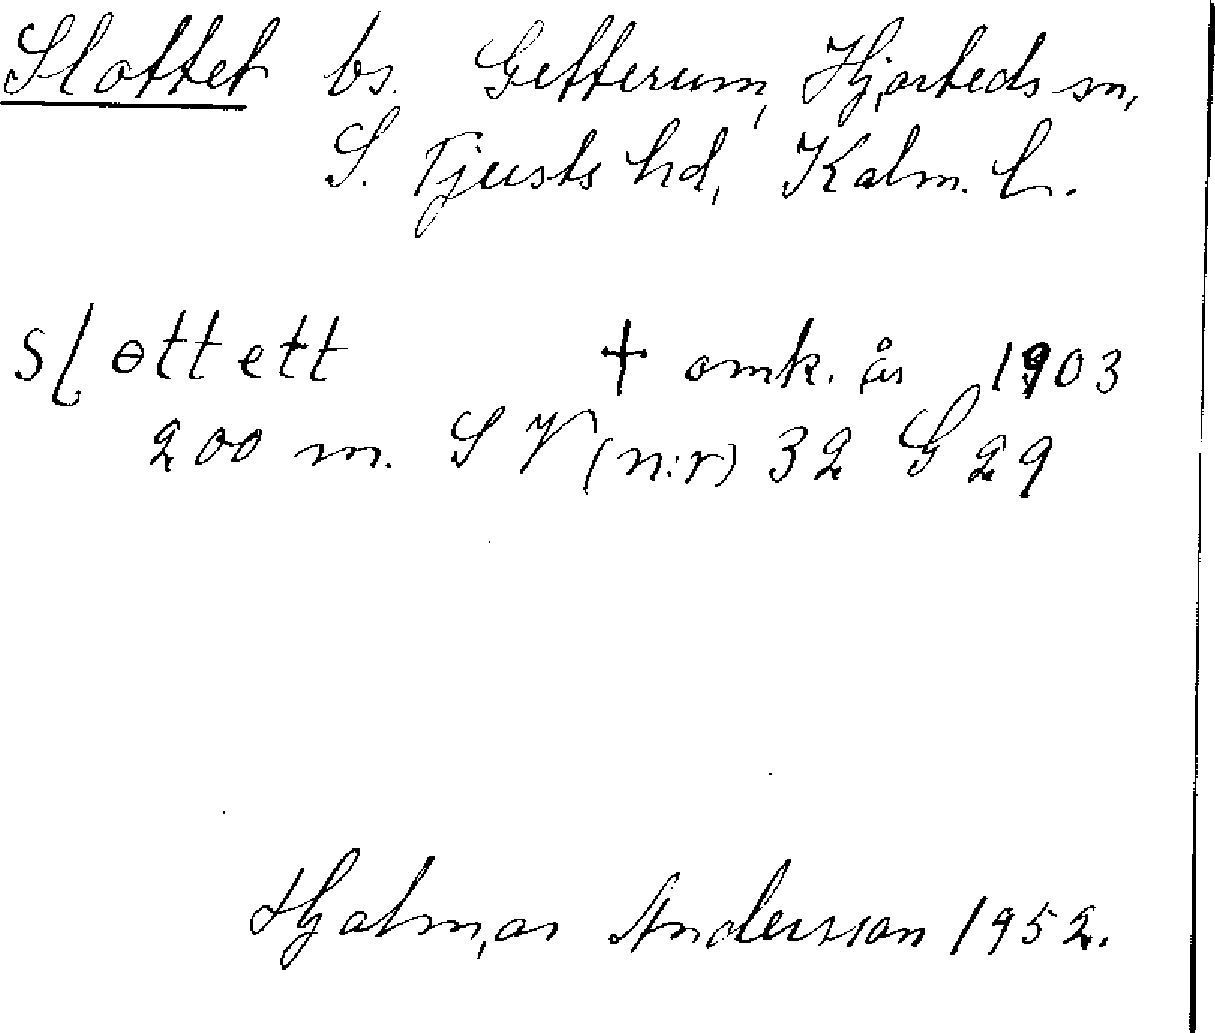 Slottet bs. Getterum, Hjorteds sn,
S. Tjusts hd, Kalm. L.
slɵttett † omk. år 1903
200 m. SV (n:r) 32 G 29
Hjalmar Andersson 1952.